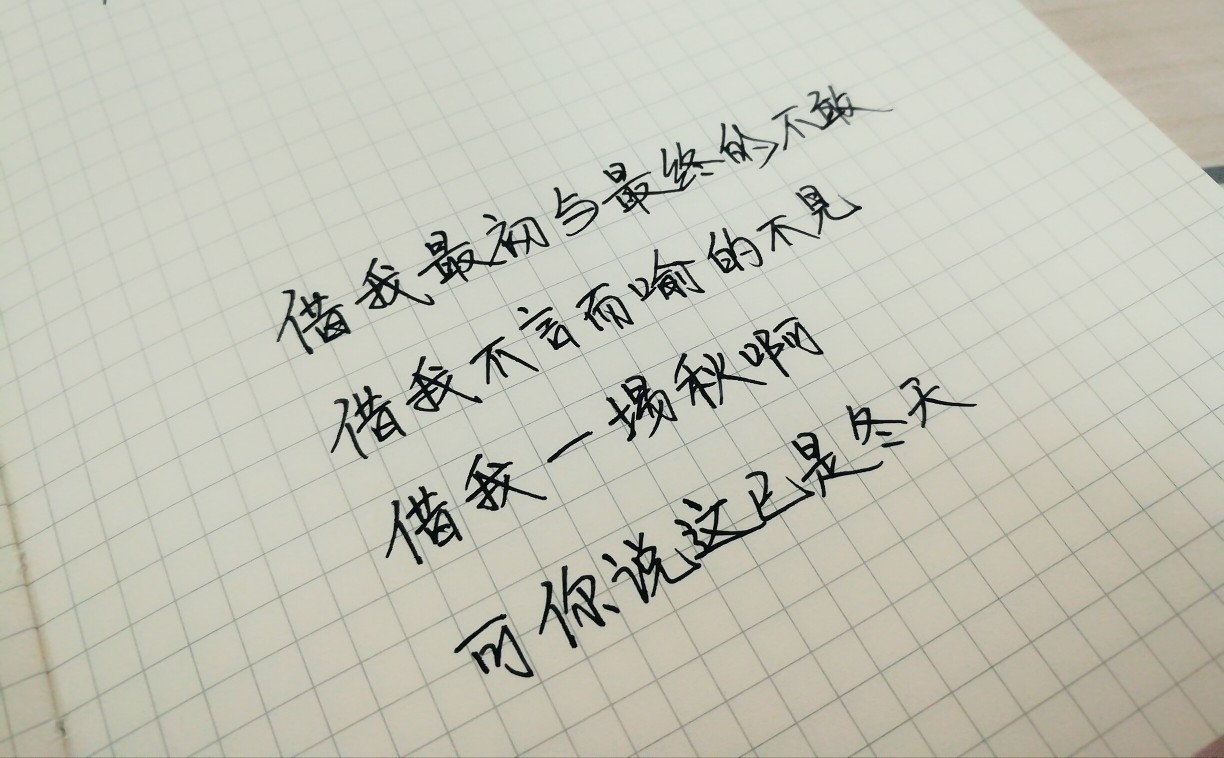 借我最初与最终的不敢
借我不言而喻的不见
借我一场秋啊
可你说这已是冬天